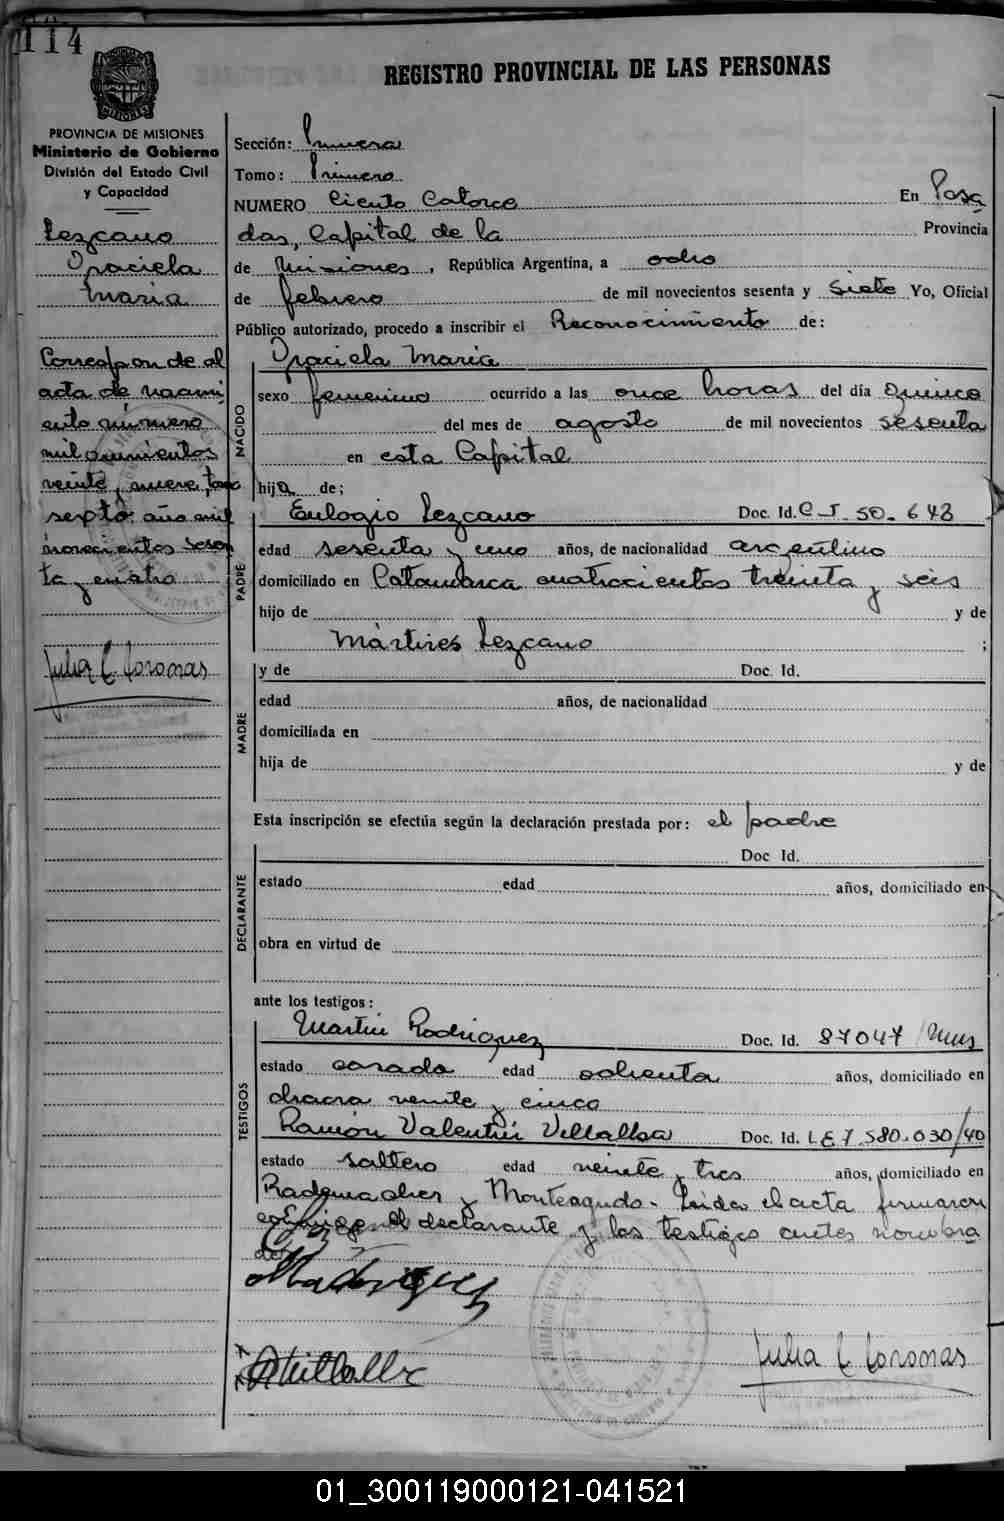 114
REGISTRO PROVINCIAL DE LAS PERSONAS
PROVINCIA DE MISIONES
Ministerio de Gobierno
División del Estado Civil
y Capacidad
Lezcano
Graciela
María
Corresponde al
acta de nacimi
ento número
mil quinientos
veinte y nueve, tomo
sexto: año mil
novecientos sesen
ta y cuatro
Julia C Coronas
Sección: Primera
Tomo: Primero
NUMERO Ciento Catorce En Posa
das, Capital de la Provincia
de Misiones, República Argentina, a ocho
de febrero de mil novecientos sesenta y siete Yo, Oficial
Público autorizado, procedo a inscribir el Reconocimiento de:
NACIDO
Graciela María
sexo femenino ocurrido a las once horas del día quince
del mes de agosto de mil novecientos sesenta
en esta Capital
hija de;
PADRE
Eulogio Lezcano Doc. Id. C.I. 50.643
edad sesenta y uno años, de nacionalidad argentino
domiciliado en Catamarca cuatrocientos treinta y seis
hijo de y de
Mártires Lezcano ;
MADRE
y de Doc. Id.
edad años, de nacionalidad
domiciliada en
hija de y de
Esta inscripción se efectúa según la declaración prestada por: el padre
DECLARANTE
Doc Id.
estado edad años, domiciliado en
obra en virtud de
ante los testigos:
TESTIGOS
Martín Rodríguez Doc. Id. 87047
estado casado edad ochenta años, domiciliado en
chacra veinte y cinco
Ramón Valentín Villalba Doc. Id. L E 7.580.030/40
estado soltero edad veinte y tres años, domiciliado en
Rademacher y Monteagudo. Leida el acta firmaron
el declarante y los testigos antes nombra
dos
Julia C Coronas
01_300119000121-041521